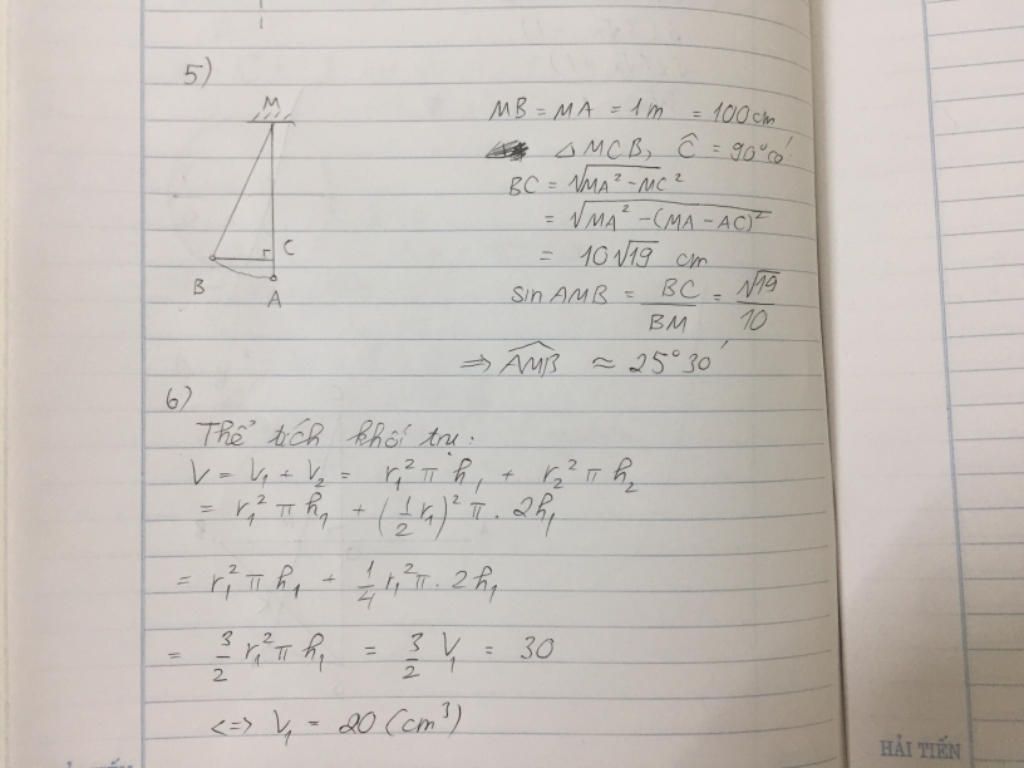 5)
M
C
B
A
MB = MA = 1m = 100cm
△MCB, Ĉ = 90° có:
BC = √(MA² - MC²)
= √(MA² - (MA - AC)²)
= 10√19 cm
sin AMB = BC/BM = √19/10
=> \widehat{AMB} ≈ 25°30'
6)
Thể tích khối trụ:
V = V₁ + V₂ = r₁²πh₁ + r₂²πh₂
= r₁²πh₁ + (1/2 r₁)²π.2h₁
= r₁²πh₁ + 1/4 r₁²π.2h₁
= 3/2 r₁²πh₁ = 3/2 V₁ = 30
<=> V₁ = 20 (cm³)
HẢI TIẾN